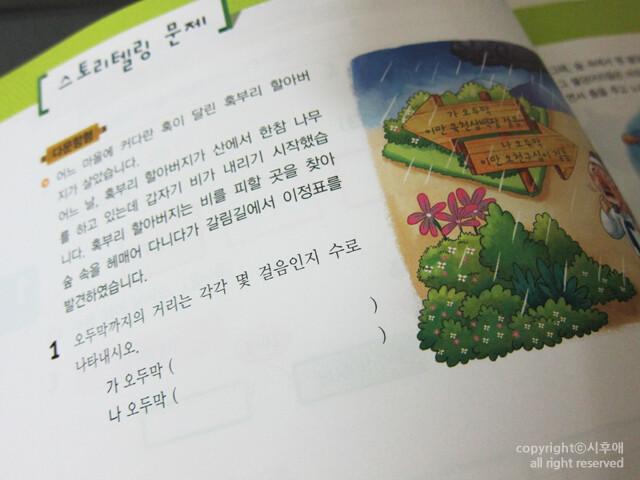 스토리텔링 문제
다문항형
어느 마을에 커다란 혹이 달린 혹부리 할아버
지가 살았습니다.
어느 날, 혹부리 할아버지가 산에서 한참 나무
를 하고 있는데 갑자기 비가 내리기 시작했습
니다. 혹부리 할아버지는 비를 피할 곳을 찾아
숲 속을 헤매어 다니다가 갈림길에서 이정표를
발견하였습니다.
1 오두막까지의 거리는 각각 몇 걸음인지 수로
나타내시오.
가 오두막 ( )
나 오두막 ( )
가 오두막
이만 육천삼백팔 걸음
나 오두막
이만 오천구십이 걸음
copyright©시후애
all right reserved